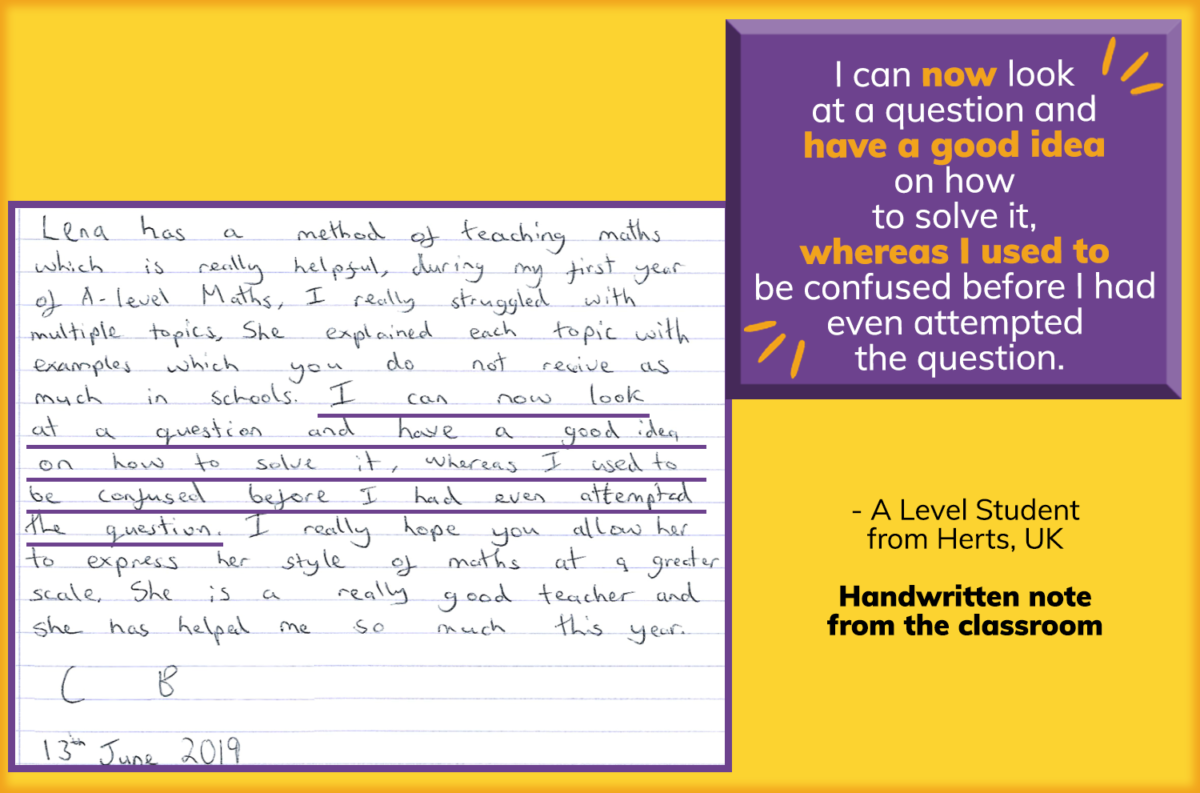 Lena has a method of teaching maths
which is really helpful, during my first year
of A-level Maths, I really struggled with
multiple topics, She explained each topic with
examples which you do not recive as
much in schools. I can now look
at a question and have a good idea
on how to solve it, whereas I used to
be confused before I had even attempted
the question. I really hope you allow her
to express her style of maths at a greater
scale. She is a really good teacher and
she has helped me so much this year.
C B
13th June 2019
I can now look
at a question and
have a good idea
on how
to solve it,
whereas I used to
be confused before I had
even attempted
the question.
- A Level Student
from Herts, UK
Handwritten note
from the classroom